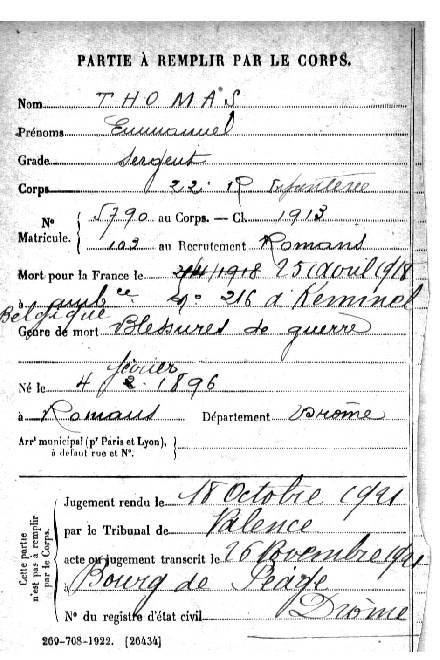 PARTIE À REMPLIR PAR LE CORPS.
Nom THOMAS
Prénoms Emmanuel
Grade Sergent
Corps 22e R Infanterie
No Matricule. { 5790 au Corps. — Cl. 1913
103 au Recrutement Romans
Mort pour la France le 25 avril 1918
à ambce no 216 d Kemmel
Belgique
Genre de mort Blessures de guerre
février
Né le 4 2. 1896
à Romans Département Drôme
Arrt municipal (pr Paris et Lyon), }
à défaut rue et No.
Cette partie n'est pas à remplir par le Corps.
Jugement rendu le 18 Octobre 1921
par le Tribunal de Valence
acte ou jugement transcrit le 26 Novembre 1921
à Bourg de Péage
Drôme
No du registre d'état civil
269-708-1922. [26434]